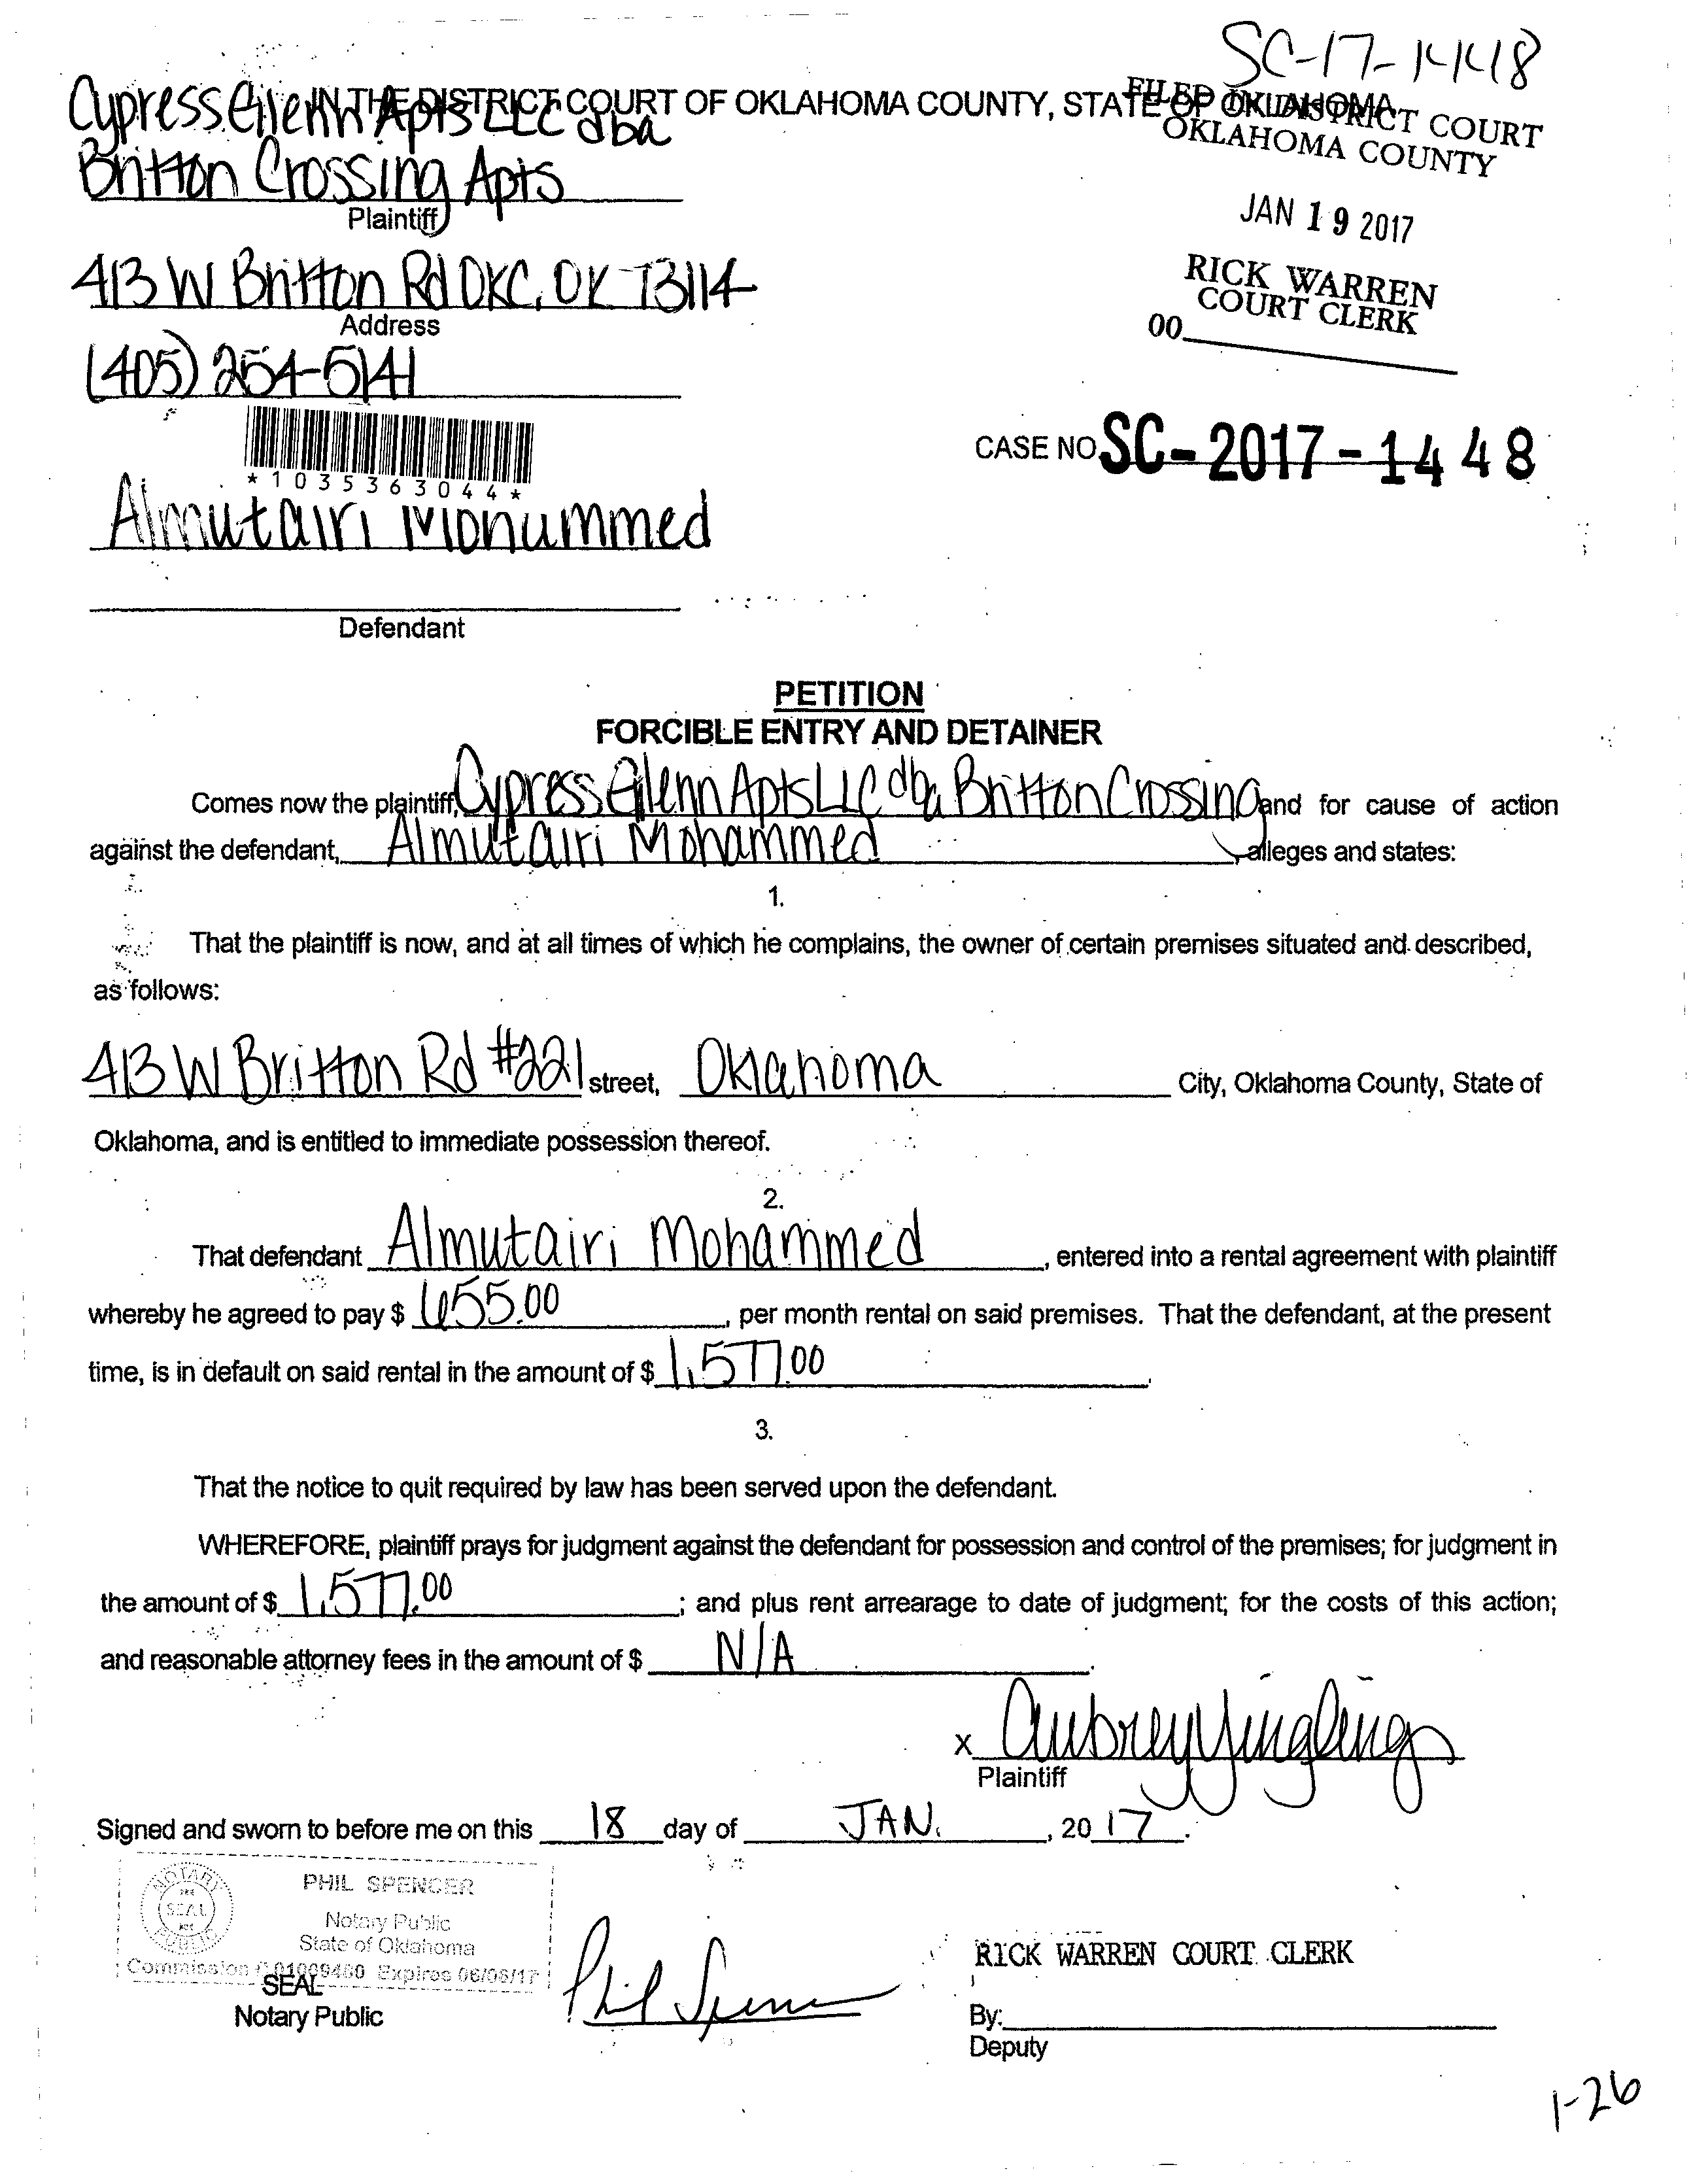 SC-17-1448
IN THE DISTRICT COURT OF OKLAHOMA COUNTY, STATE OF OKLAHOMA
FILED IN DISTRICT COURT
OKLAHOMA COUNTY
JAN 19 2017
RICK WARREN
COURT CLERK
00
Cypress Glenn Apts LLC dba
Britton Crossing Apts
Plaintiff
413 W Britton Rd OKC, OK 73114
Address
(405) 254-5141
*1035363044*
CASE NO SC-2017-1448
Almutairi Mohummed
Defendant
PETITION
FORCIBLE ENTRY AND DETAINER
Comes now the plaintiff, Cypress Glenn Apts LLC dba Britton Crossing and for cause of action
against the defendant, Almutairi Mohammed, alleges and states:
1.
That the plaintiff is now, and at all times of which he complains, the owner of certain premises situated and described,
as follows:
413 W Britton Rd #221 street, Oklahoma City, Oklahoma County, State of
Oklahoma, and is entitled to immediate possession thereof.
2.
That defendant Almutairi Mohammed, entered into a rental agreement with plaintiff
whereby he agreed to pay $ 655.00, per month rental on said premises. That the defendant, at the present
time, is in default on said rental in the amount of $ 1,577.00.
3.
That the notice to quit required by law has been served upon the defendant.
WHEREFORE, plaintiff prays for judgment against the defendant for possession and control of the premises; for judgment in
the amount of $ 1,577.00; and plus rent arrearage to date of judgment; for the costs of this action;
and reasonable attorney fees in the amount of $ N/A.
x Aubrey Yingling
Plaintiff
Signed and sworn to before me on this 18 day of JAN., 20 17.
NOTARY
SEAL
PUBLIC
PHIL SPENCER
Notary Public
State of Oklahoma
Commission # 01009480 Expires 06/06/17
SEAL
Notary Public
Phil Spencer
RICK WARREN COURT CLERK
By:
Deputy
1-26